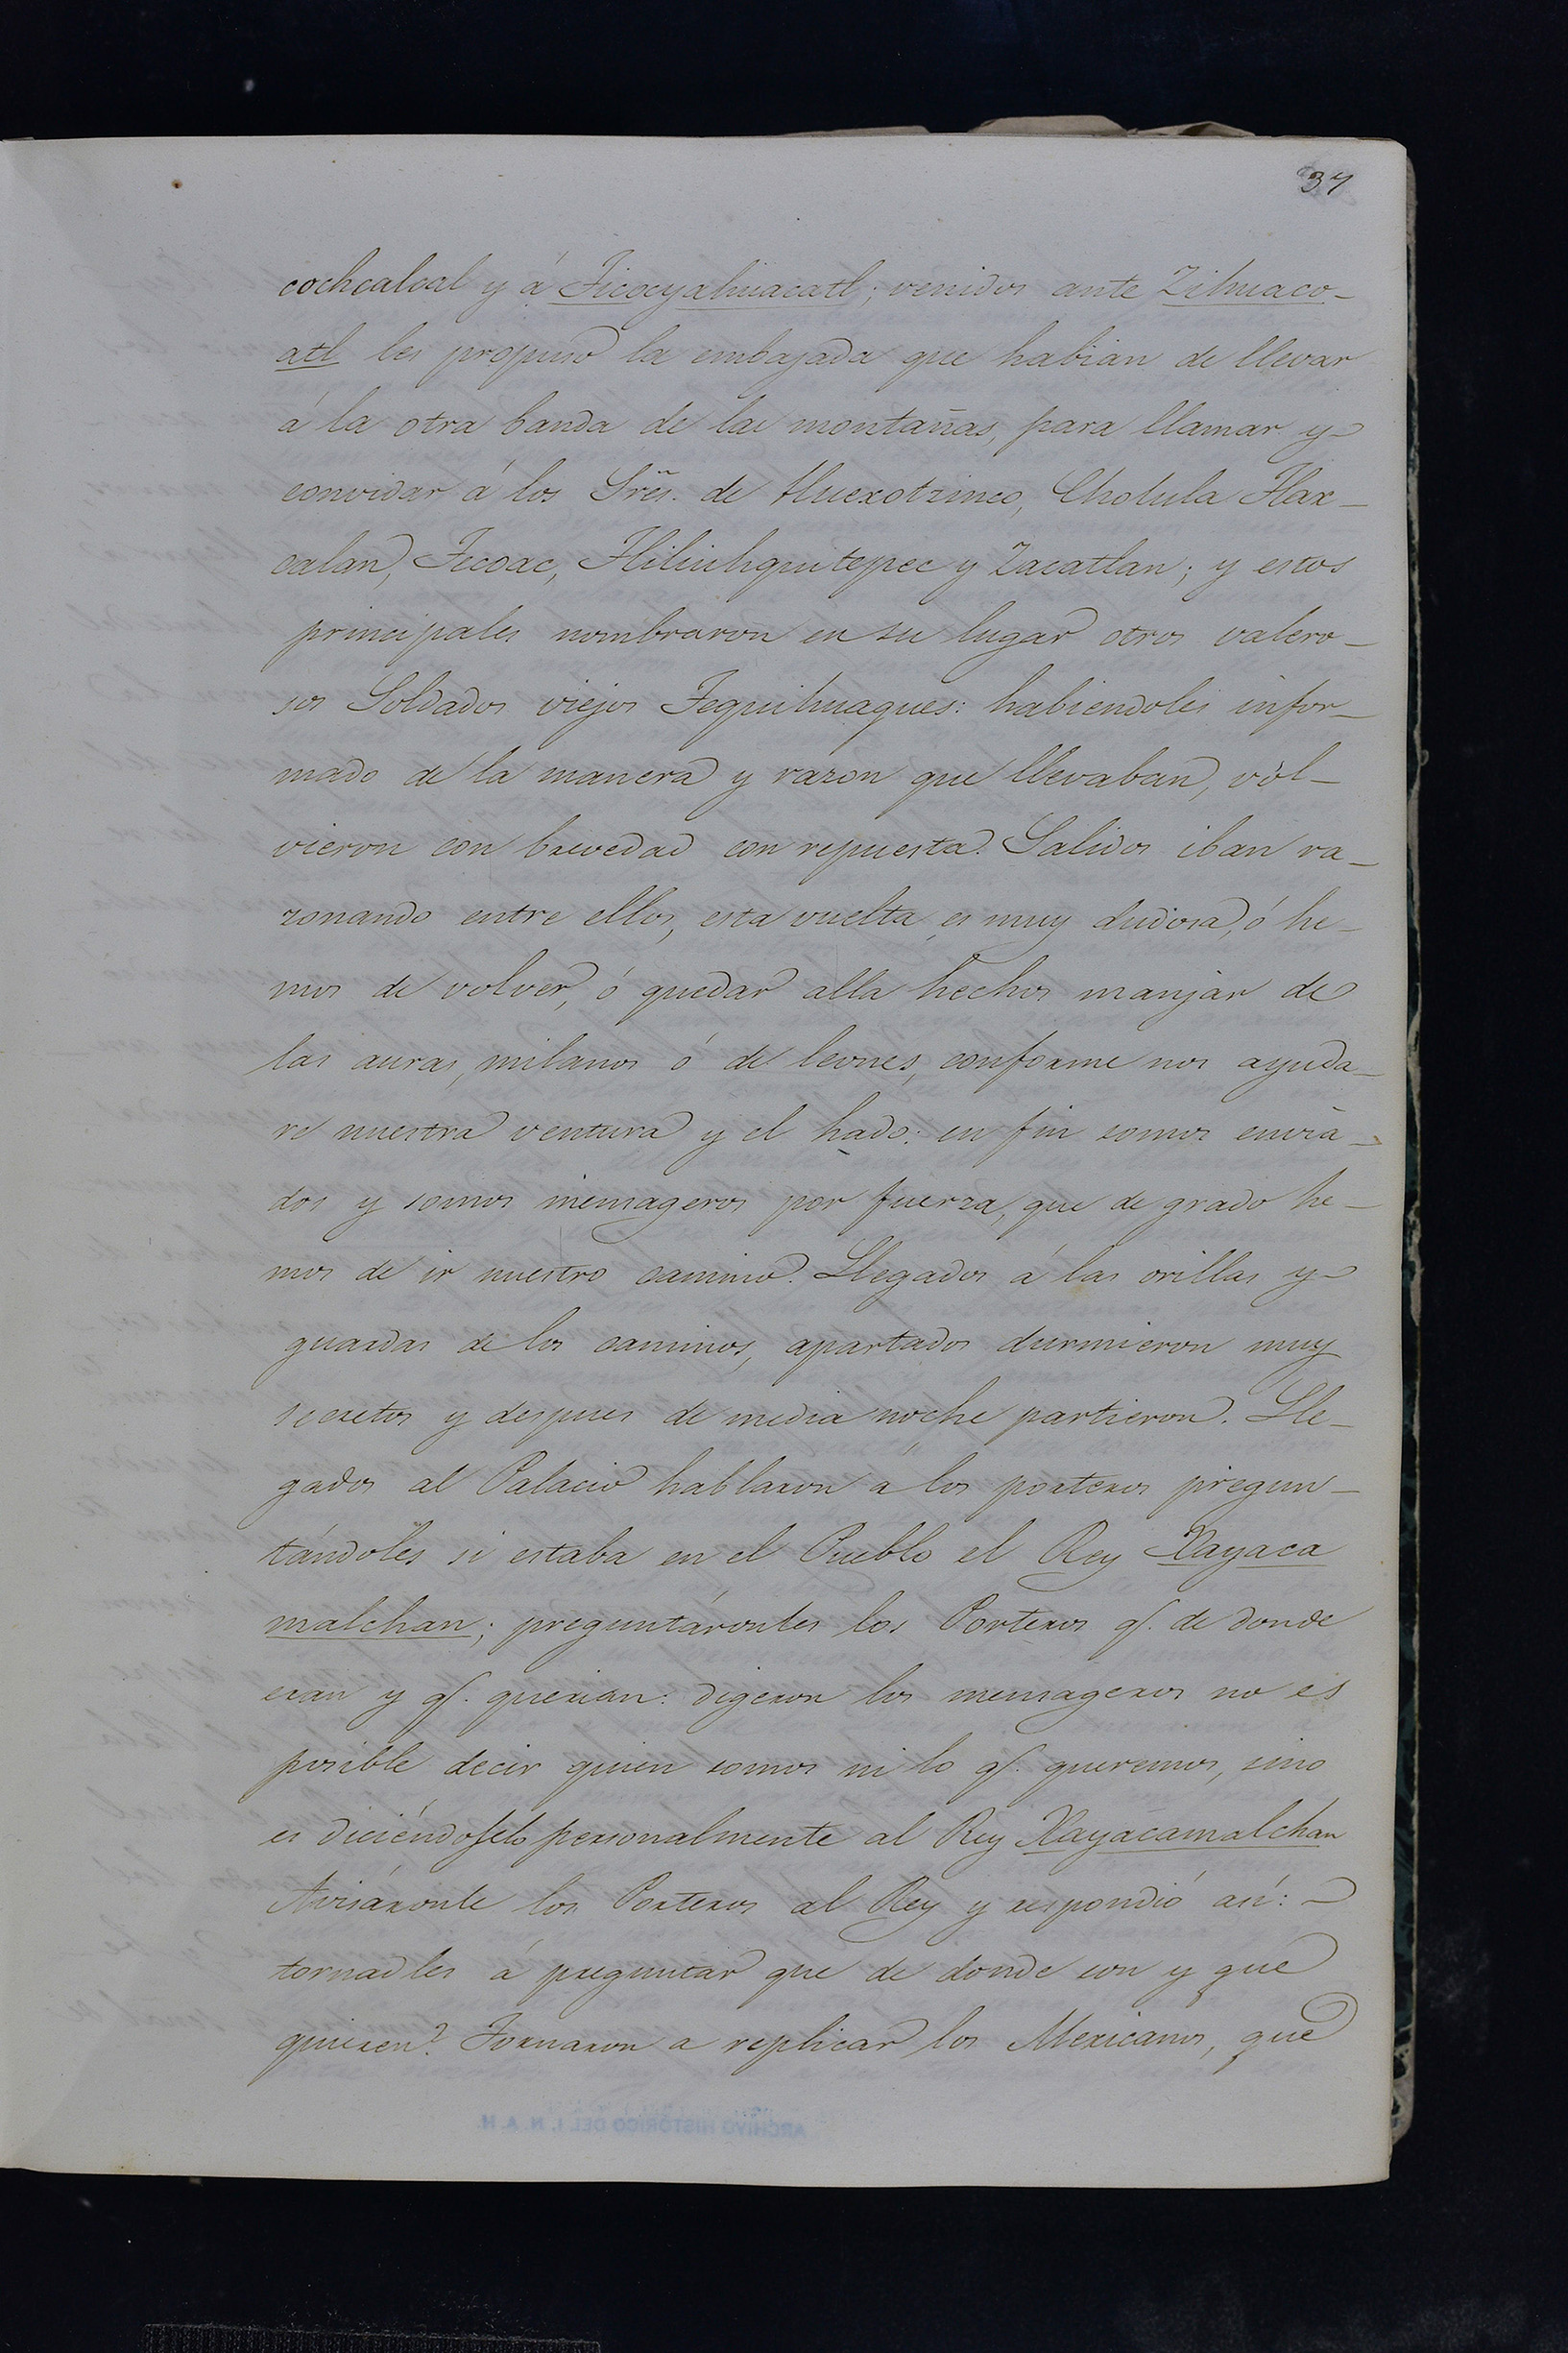 37
cochcalcal y á Ticocyahuacatl; venidos ante Zihuaco-
atl les propuso la embajada que habian de llevar
á la otra banda de las montañas, para llamar y
convidar á los Srēs. de Huexotzinco, Cholula Tlax-
calan, Tecoac, Tliliuhquitepec y Zacatlan; y estos
principales nombraron en su lugar otros valero-
sos Soldados viejos Tequihuaques: habiendoles infor-
mado de la manera y razon que llevaban, vol-
vieron con brevedad con repuesta. Salidos iban ra-
zonando entre ellos, esta vuelta es muy dudosa, ó he-
mos de volver, ó quedar alla hechos manjar de
las auras, milanos ó de leones, conforme nos ayuda-
re nuestra ventura y el hado: en fin somos envia-
dos y somos mensageros por fuerza, que de grado he-
mos de ir nuestro camino. Llegados á las orillas y
guardas de los caminos, apartados durmieron muy
secretos y despues de media noche partieron. Lle-
gados al Palacio hablaron á los porteros pregun-
tándoles si estaba en el Pueblo el Rey Xayaca
malchan; preguntáronles los Porteros q. de donde
eran y q. querian: digeron los mensageros no es
posible decir quien somos ni lo q. queremos, sino
es diciéndoselo personalmente al Rey Xayacamalchan
Avisáronle los Porteros al Rey y respondió así:
tornadles á preguntar que de donde son y que
quieren? Tornaron a replicar los Mexicanos, que
ARCHIVO HISTÓRICO DEL I. N. A. H.